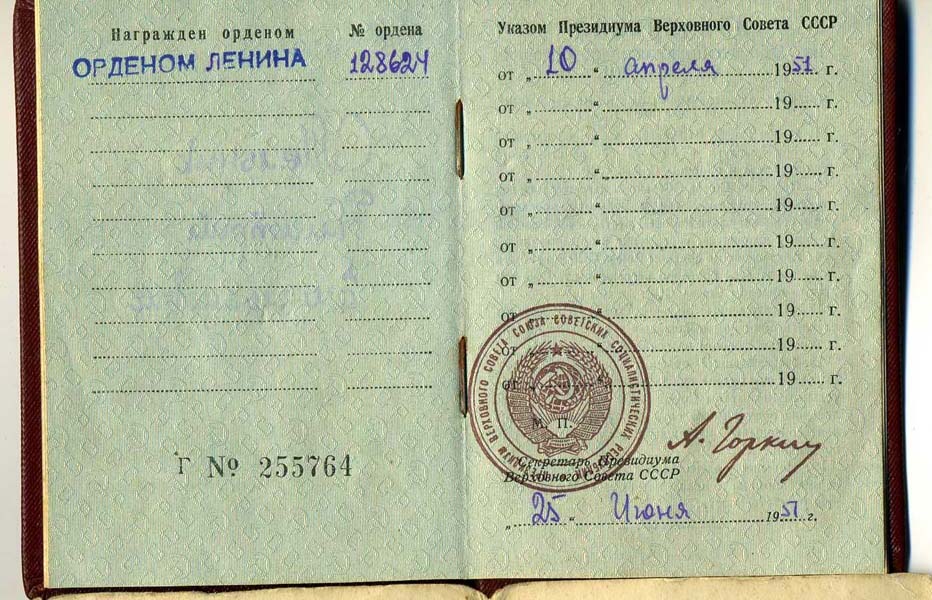 Награжден орденом
№ ордена
ОРДЕНОМ ЛЕНИНА
128624
Г № 255764
Указом Президиума Верховного Совета СССР
от „ 10 “ апреля 1951 г.
от „ “ 19 г.
от „ “ 19 г.
от „ “ 19 г.
от „ “ 19 г.
от „ “ 19 г.
от „ “ 19 г.
от „ “ 19 г.
от „ “ 19 г.
от „ “ 19 г.
ВЕРХОВНОГО СОВЕТА СОЮЗА СОВЕТСКИХ СОЦИАЛИСТИЧЕСКИХ РЕСПУБЛИК
М. П.
А. Горкин
Секретарь Президиума
Верховного Совета СССР
„ 25 “ Июня 1951 г.